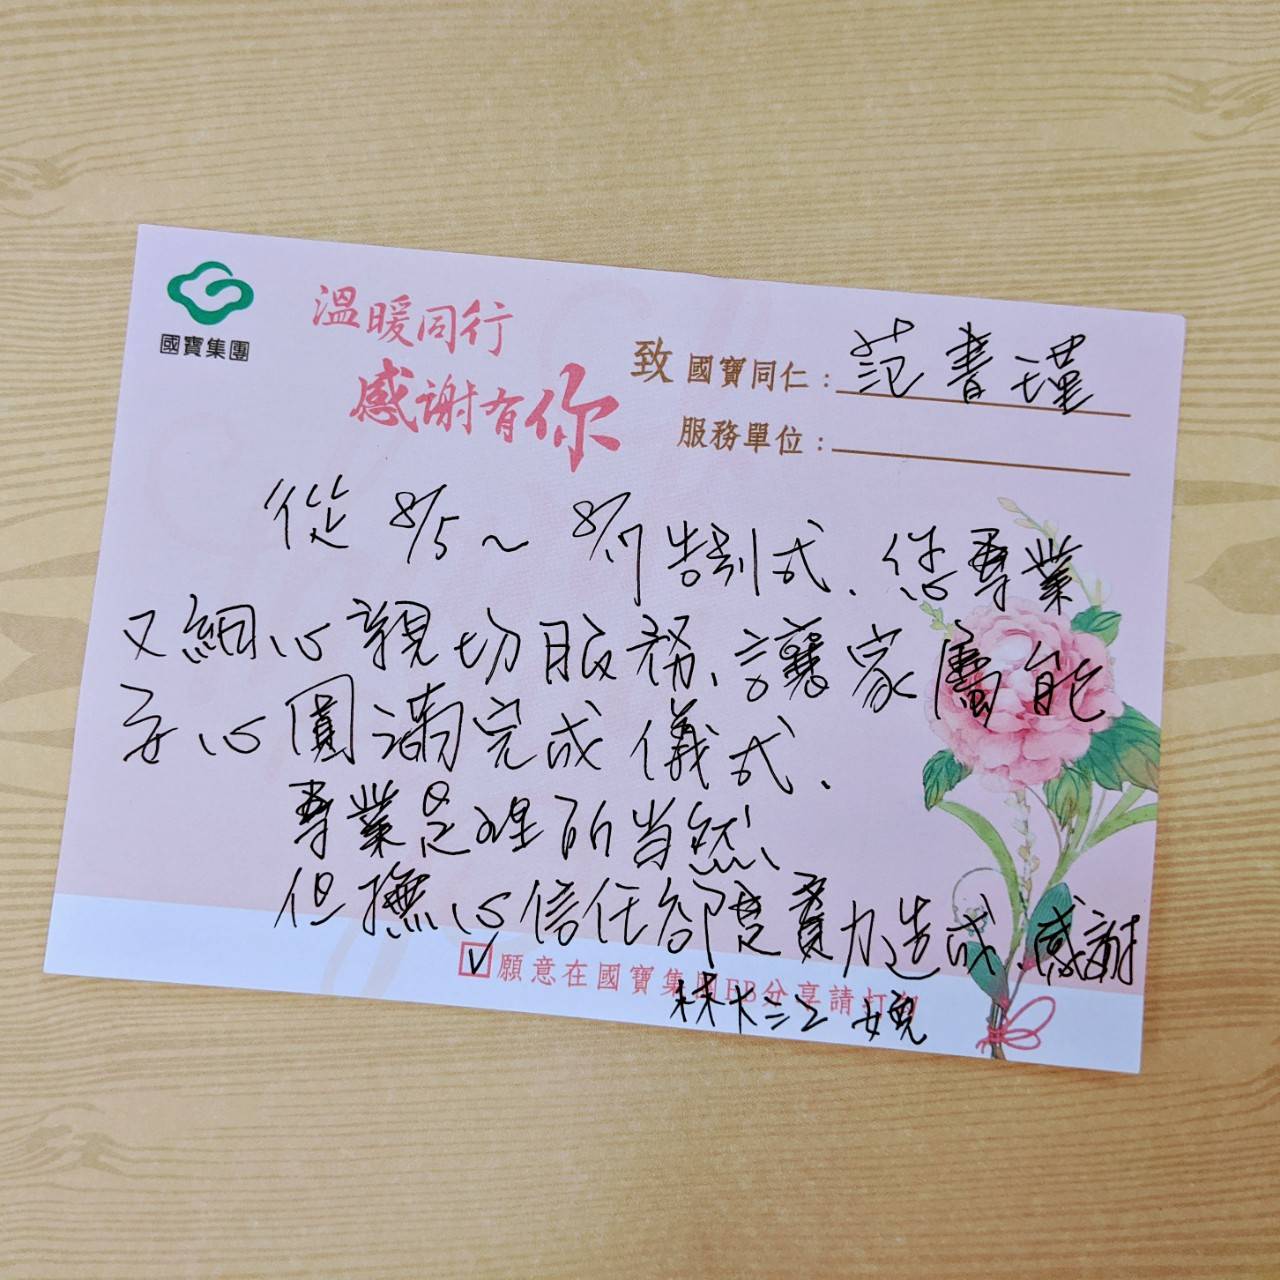 國寶集團
溫暖同行
感謝有你
致 國寶同仁：范書瑾
服務單位：
從 8/5～8/17告別式.您專業
又細心親切服務、讓家屬能
安心圓滿完成儀式.
專業是理所當然、
但撫心信任卻是實力造成、感謝
願意在國寶集團FB分享請打勾
林江婉